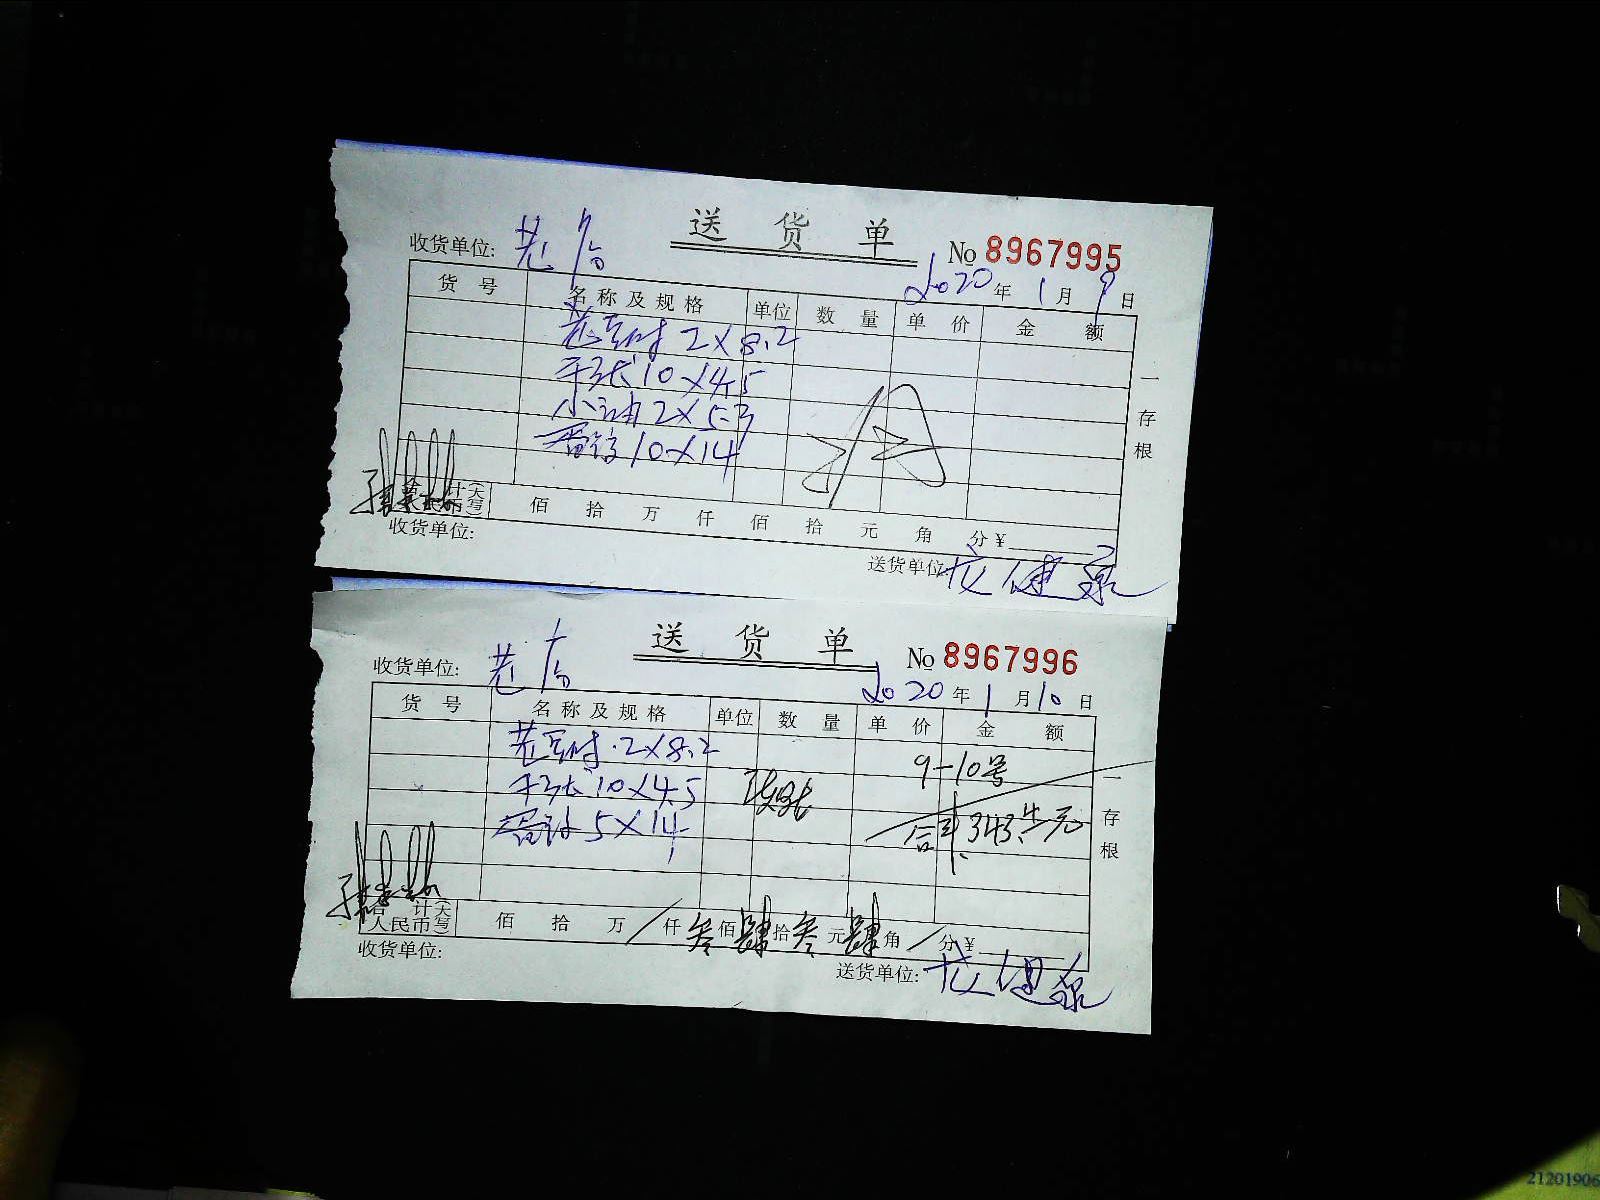 送货单
收货单位: 老店
№ 8967995
2020年1月9日
货号 名称及规格 单位 数量 单价 金额
2×8.2
千张10×4.5
小油2×5.3
10×14
合计(大写)
佰 拾 万 仟 佰 拾 元 角 分¥
收货单位:
送货单位:
一存根
送货单
收货单位: 老店
№ 8967996
2020年1月10日
货号 名称及规格 单位 数量 单价 金额
2×8.2 9-10号
千张10×4.5
5×14 合计:343.4元
合计人民币(大写)
佰 拾 万 / 仟 叁 佰 肆 拾 叁 元 肆 角 / 分¥
收货单位:
送货单位:
一存根
21201906